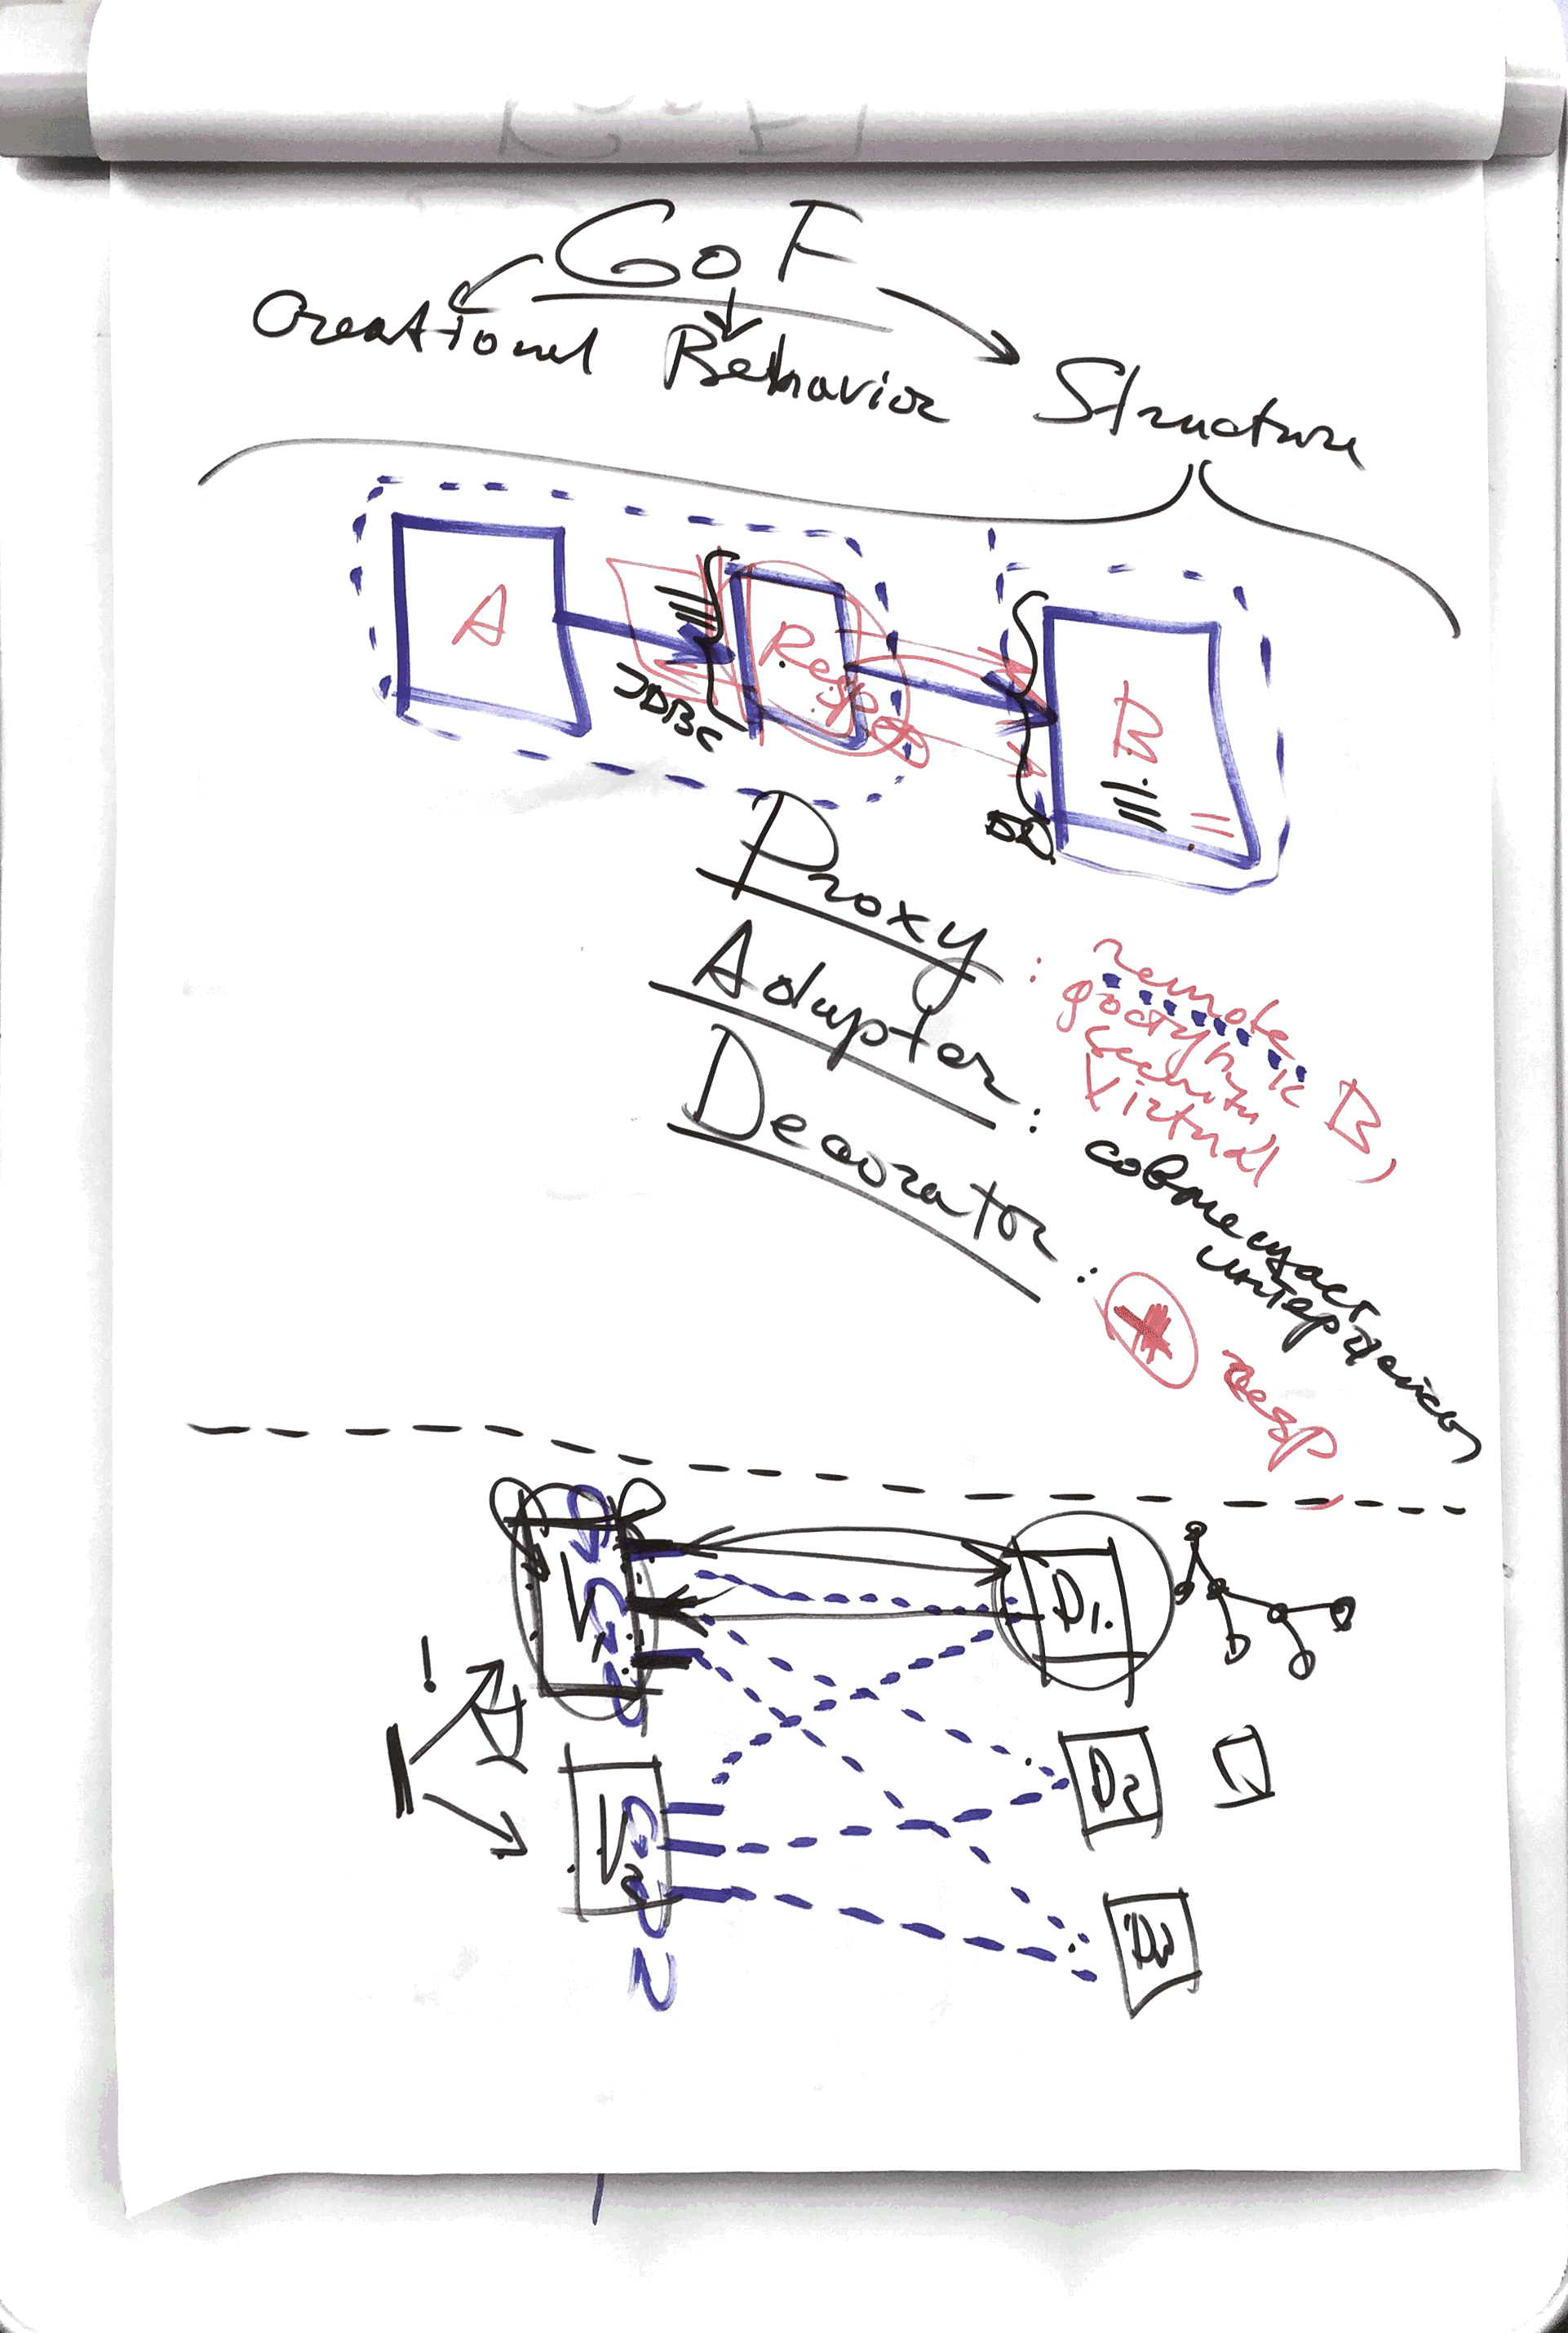 GoF
Creational Behavior Structure
A Resp B
JDBC
Proxy :
remote,
доступ к B,
security
Virtual
Adapter :
совмещает
интерфейсы
Decorator :
resp
V1 D1.
!
V2 D2
D3